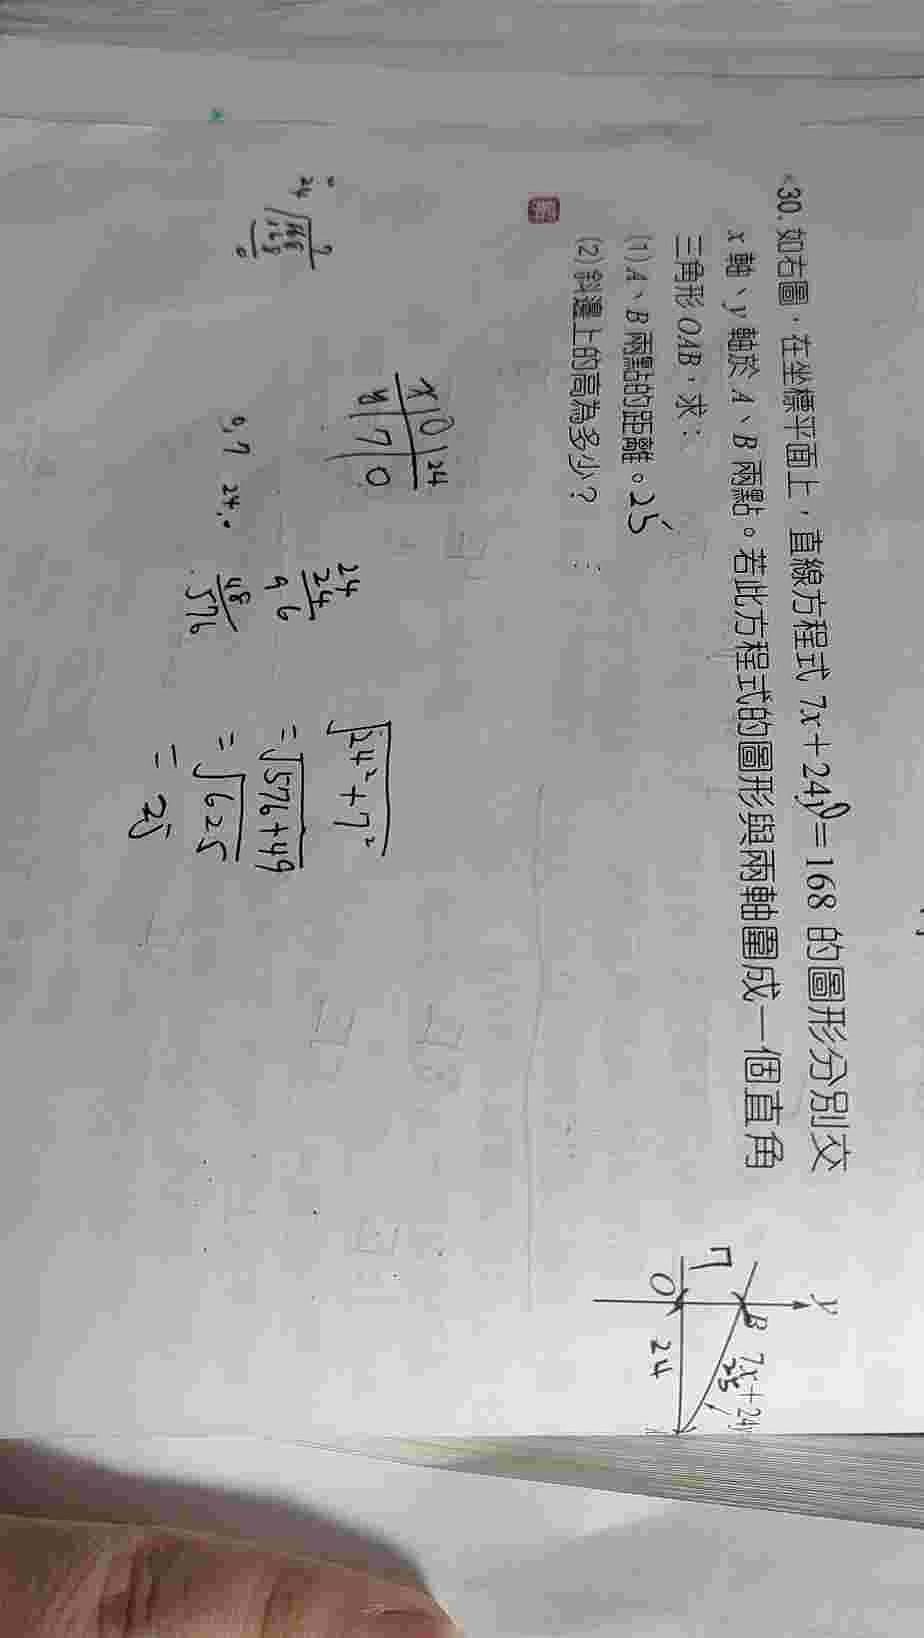 30. 如右圖，在坐標平面上，直線方程式 7x＋24y＝168 的圖形分別交
x 軸、y 軸於 A、B 兩點。若此方程式的圖形與兩軸圍成一個直角
三角形 OAB，求：
(1) A、B 兩點的距離。25
(2) 斜邊上的高為多少？
y
B
7x＋24y
25
7
O
24
x 0 24
y 7 0
7
24 168
168
0
0,7 24,0
24
24
96
48
576
√24²+7²
=√576+49
=√625
= 25